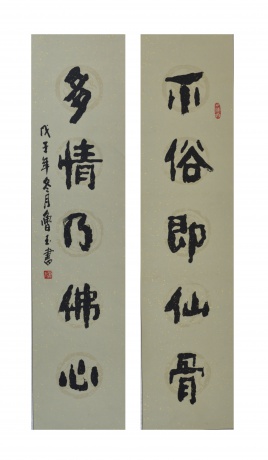 不俗即仙骨
多情乃佛心
戊子年冬月鲁玉书